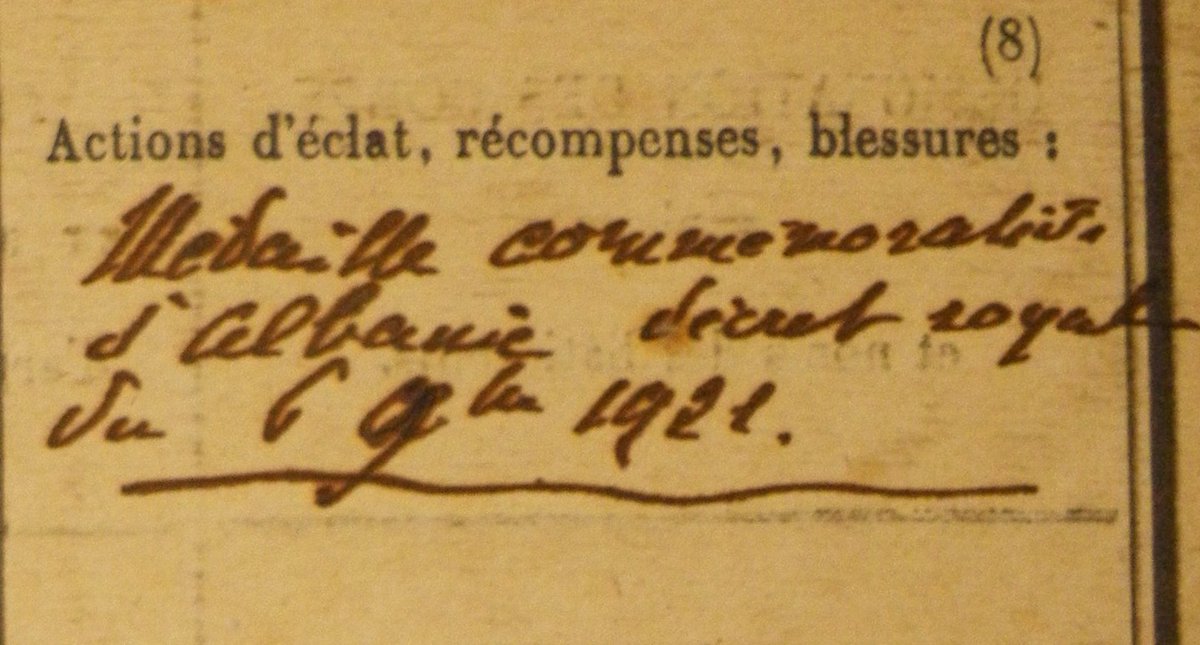 (8)
Actions d'éclat, récompenses, blessures :
Medaille commemorative
d'Albanie décret royal
du 6 9bre 1921.